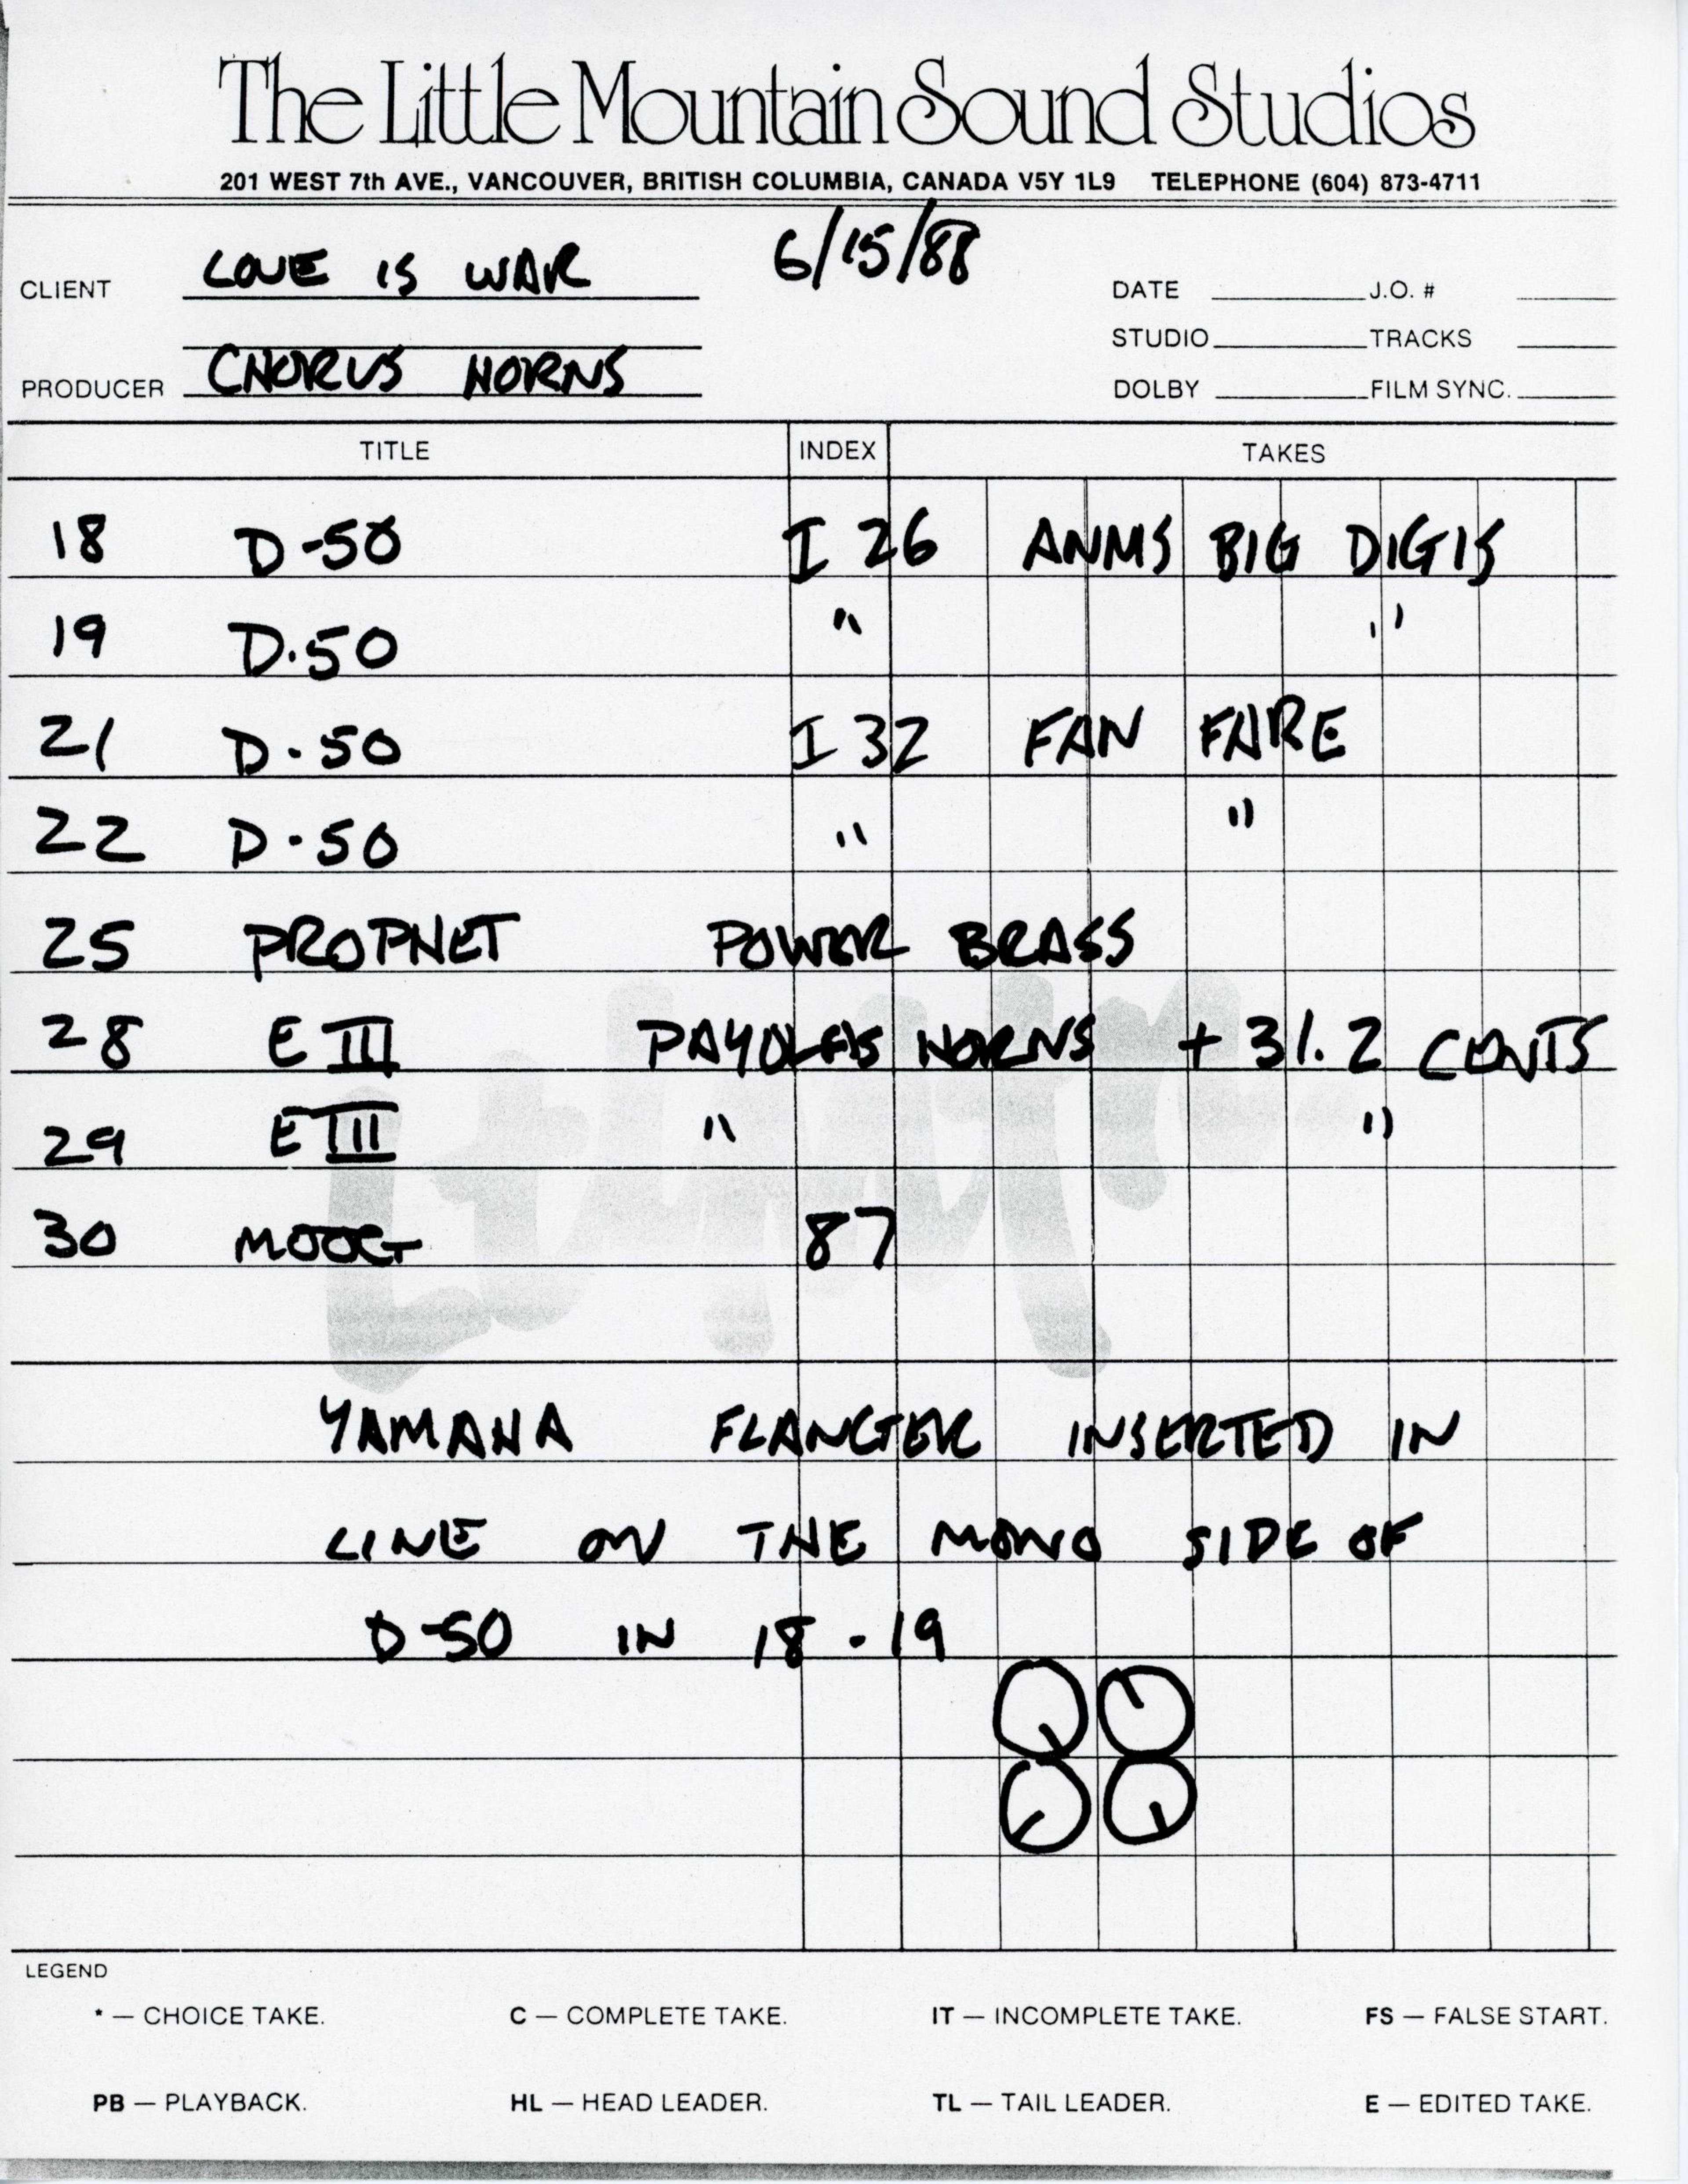 The Little Mountain Sound Studios
201 WEST 7th AVE., VANCOUVER, BRITISH COLUMBIA, CANADA V5Y 1L9 TELEPHONE (604) 873-4711
6/15/88
CLIENT LOVE IS WAR
DATE J.O. #
STUDIO TRACKS
PRODUCER CHORUS HORNS
DOLBY FILM SYNC.
TITLE INDEX TAKES
18 D-50 I 26 ANMS BIG DIGIS
19 D-50 " "
21 D-50 I 32 FAN FARE
22 D-50 " "
25 PROPHET POWER BRASS
28 E III PAYOLAS HORNS + 31.2 CENTS
29 E III " "
30 MOOG 87
YAMAHA FLANGER INSERTED IN
LINE ON THE MONO SIDE OF
D-50 IN 18-19
LEGEND
* — CHOICE TAKE. C — COMPLETE TAKE. IT — INCOMPLETE TAKE. FS — FALSE START.
PB — PLAYBACK. HL — HEAD LEADER. TL — TAIL LEADER. E — EDITED TAKE.